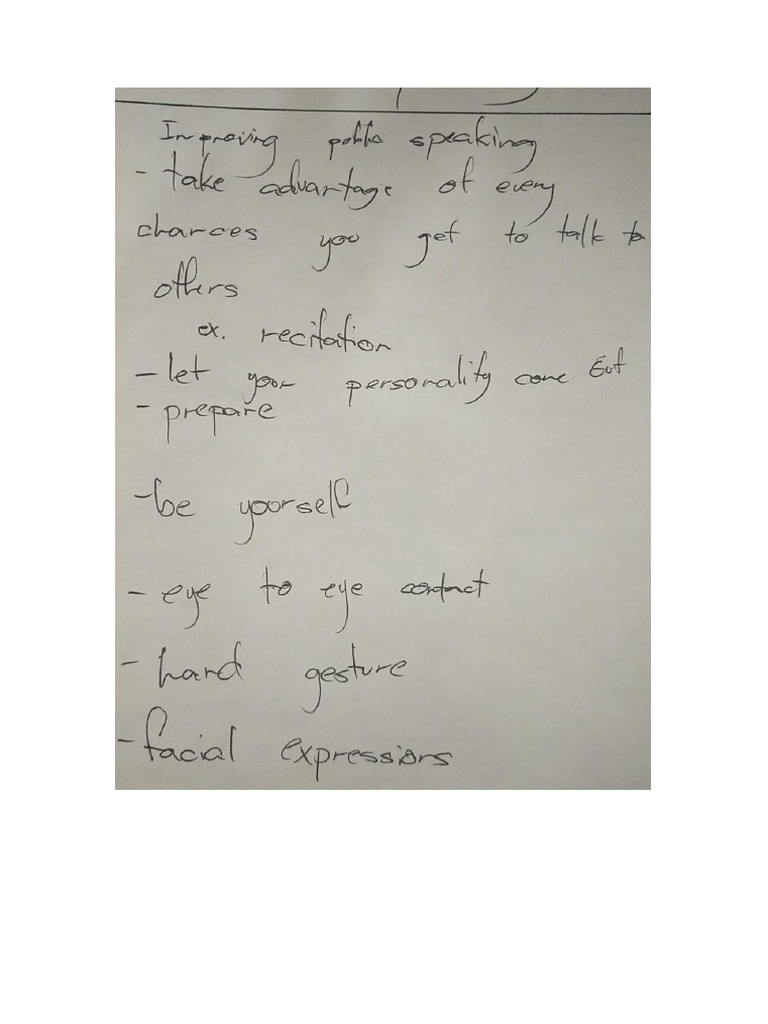 Improving public speaking
- take advantage of every
chances you get to talk to
others
ex. recitation
- let your personality come out
- prepare
- be yourself
- eye to eye contact
- hand gesture
- facial expressions